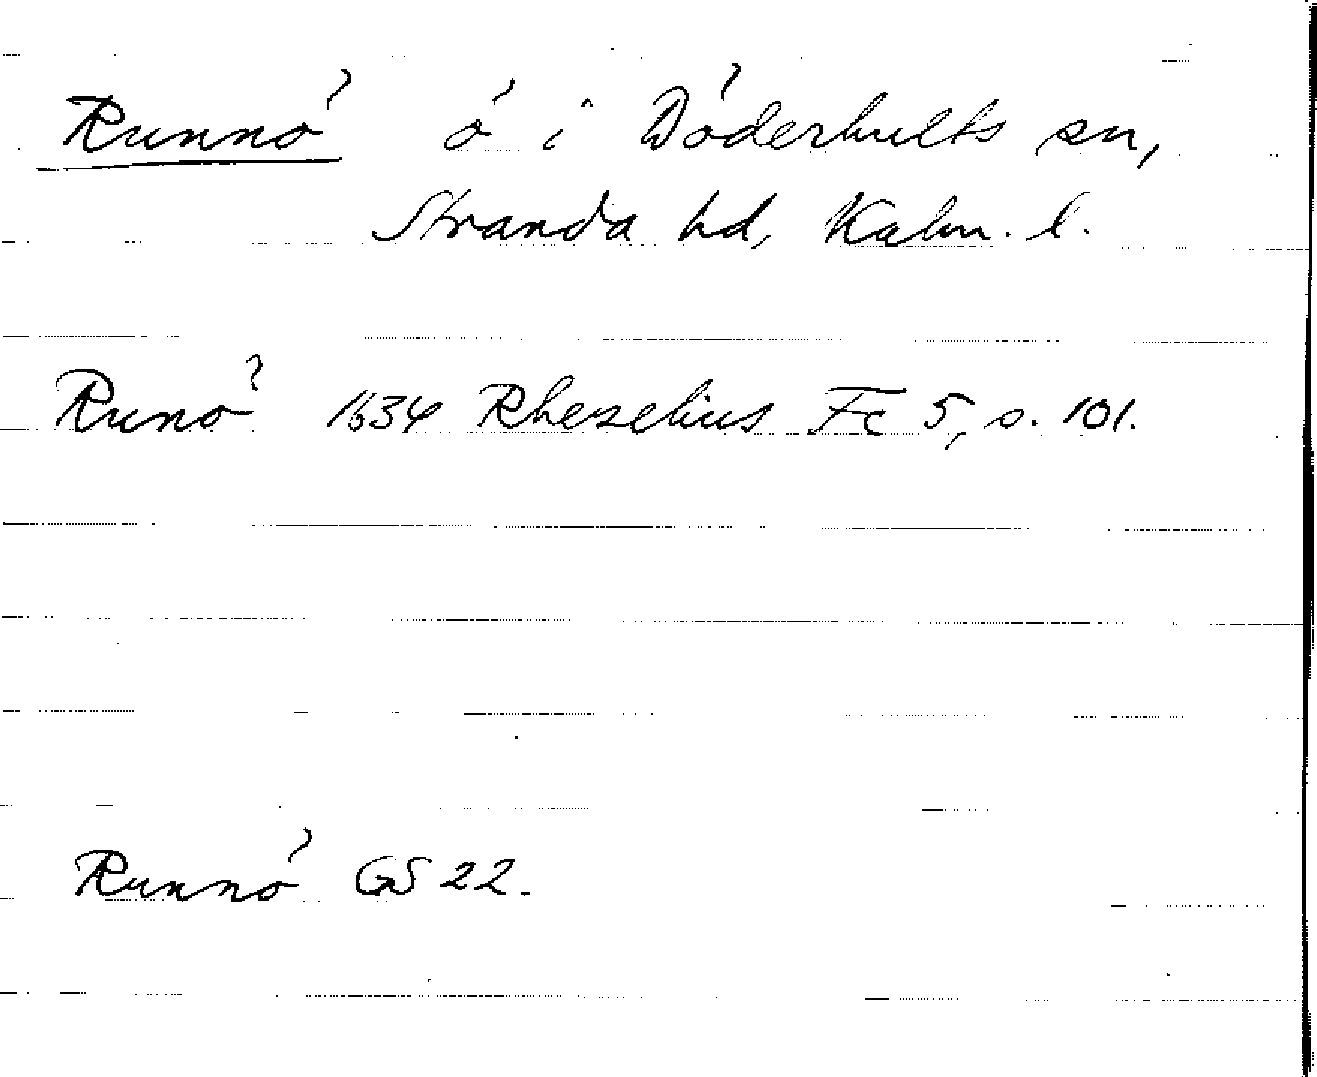 Runnö ö i Döderhults sn,
Stranda hd, Kalm. l.
Runö 1634 Rhezelius Fc 5, s. 101.
Runnö GS 22.